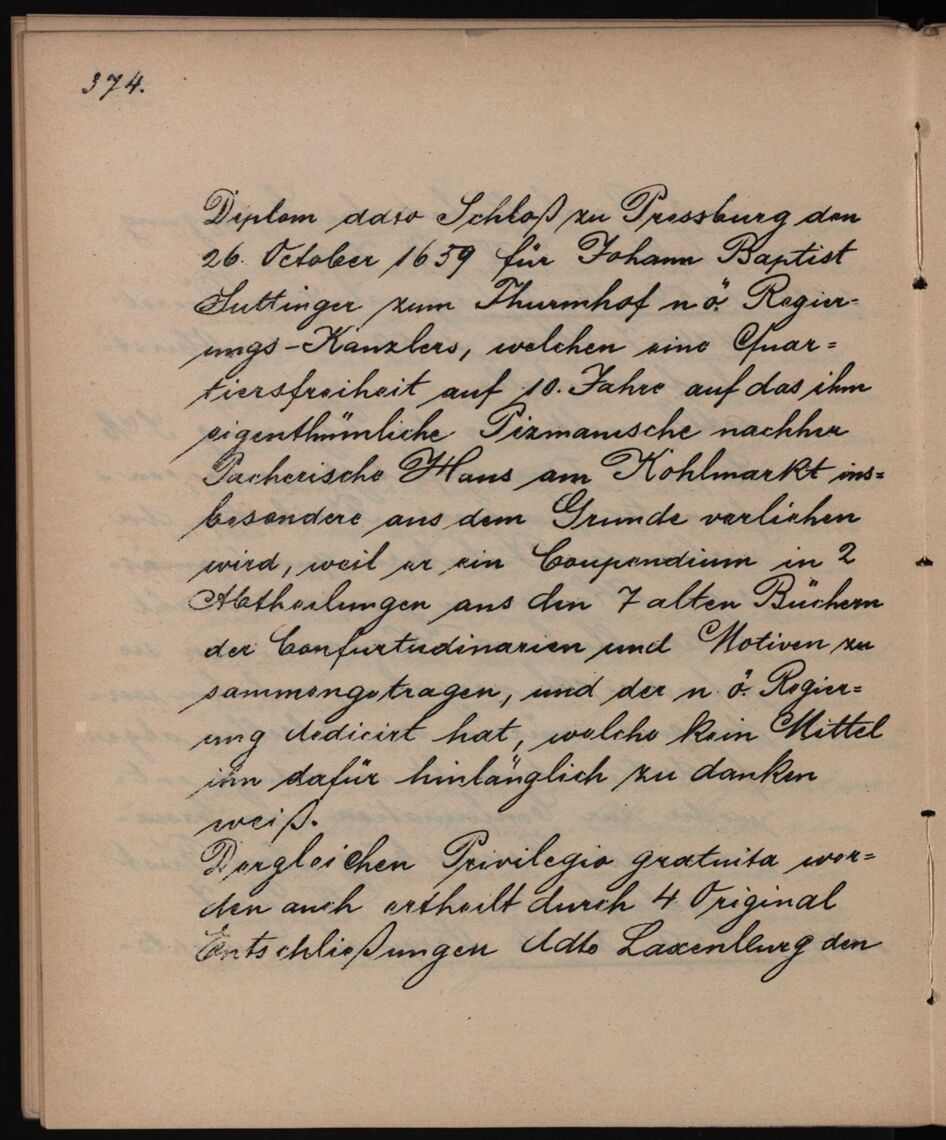 374.
Diplom ddto Schloß zu Pressburg den
26. October 1659 für Johann Baptist
Suttinger zum Thurmhof n ö. Regier=
ungs-Kanzlers, welchen eine Quar=
tiersfreiheit auf 10. Jahre auf das ihm
eigenthümliche Pizmanische nachher
Pacherische Haus am Kohlmarkt ins=
besondere aus dem Grunde verliehen
wird, weil er ein Coupendium in 2
Abtheilungen aus den 7 alten Büchern
der Confurtudinarien und Motiven zu
sammengetragen, und der n. ö. Regier=
ung dedicirt hat, welche kein Mittel
ihn dafür hinlänglich zu danken
weiß.
Dergleichen Privilegio gratuita wer=
den auch ertheilt durch 4 Original
Entschließungen ddto Laxenburg den